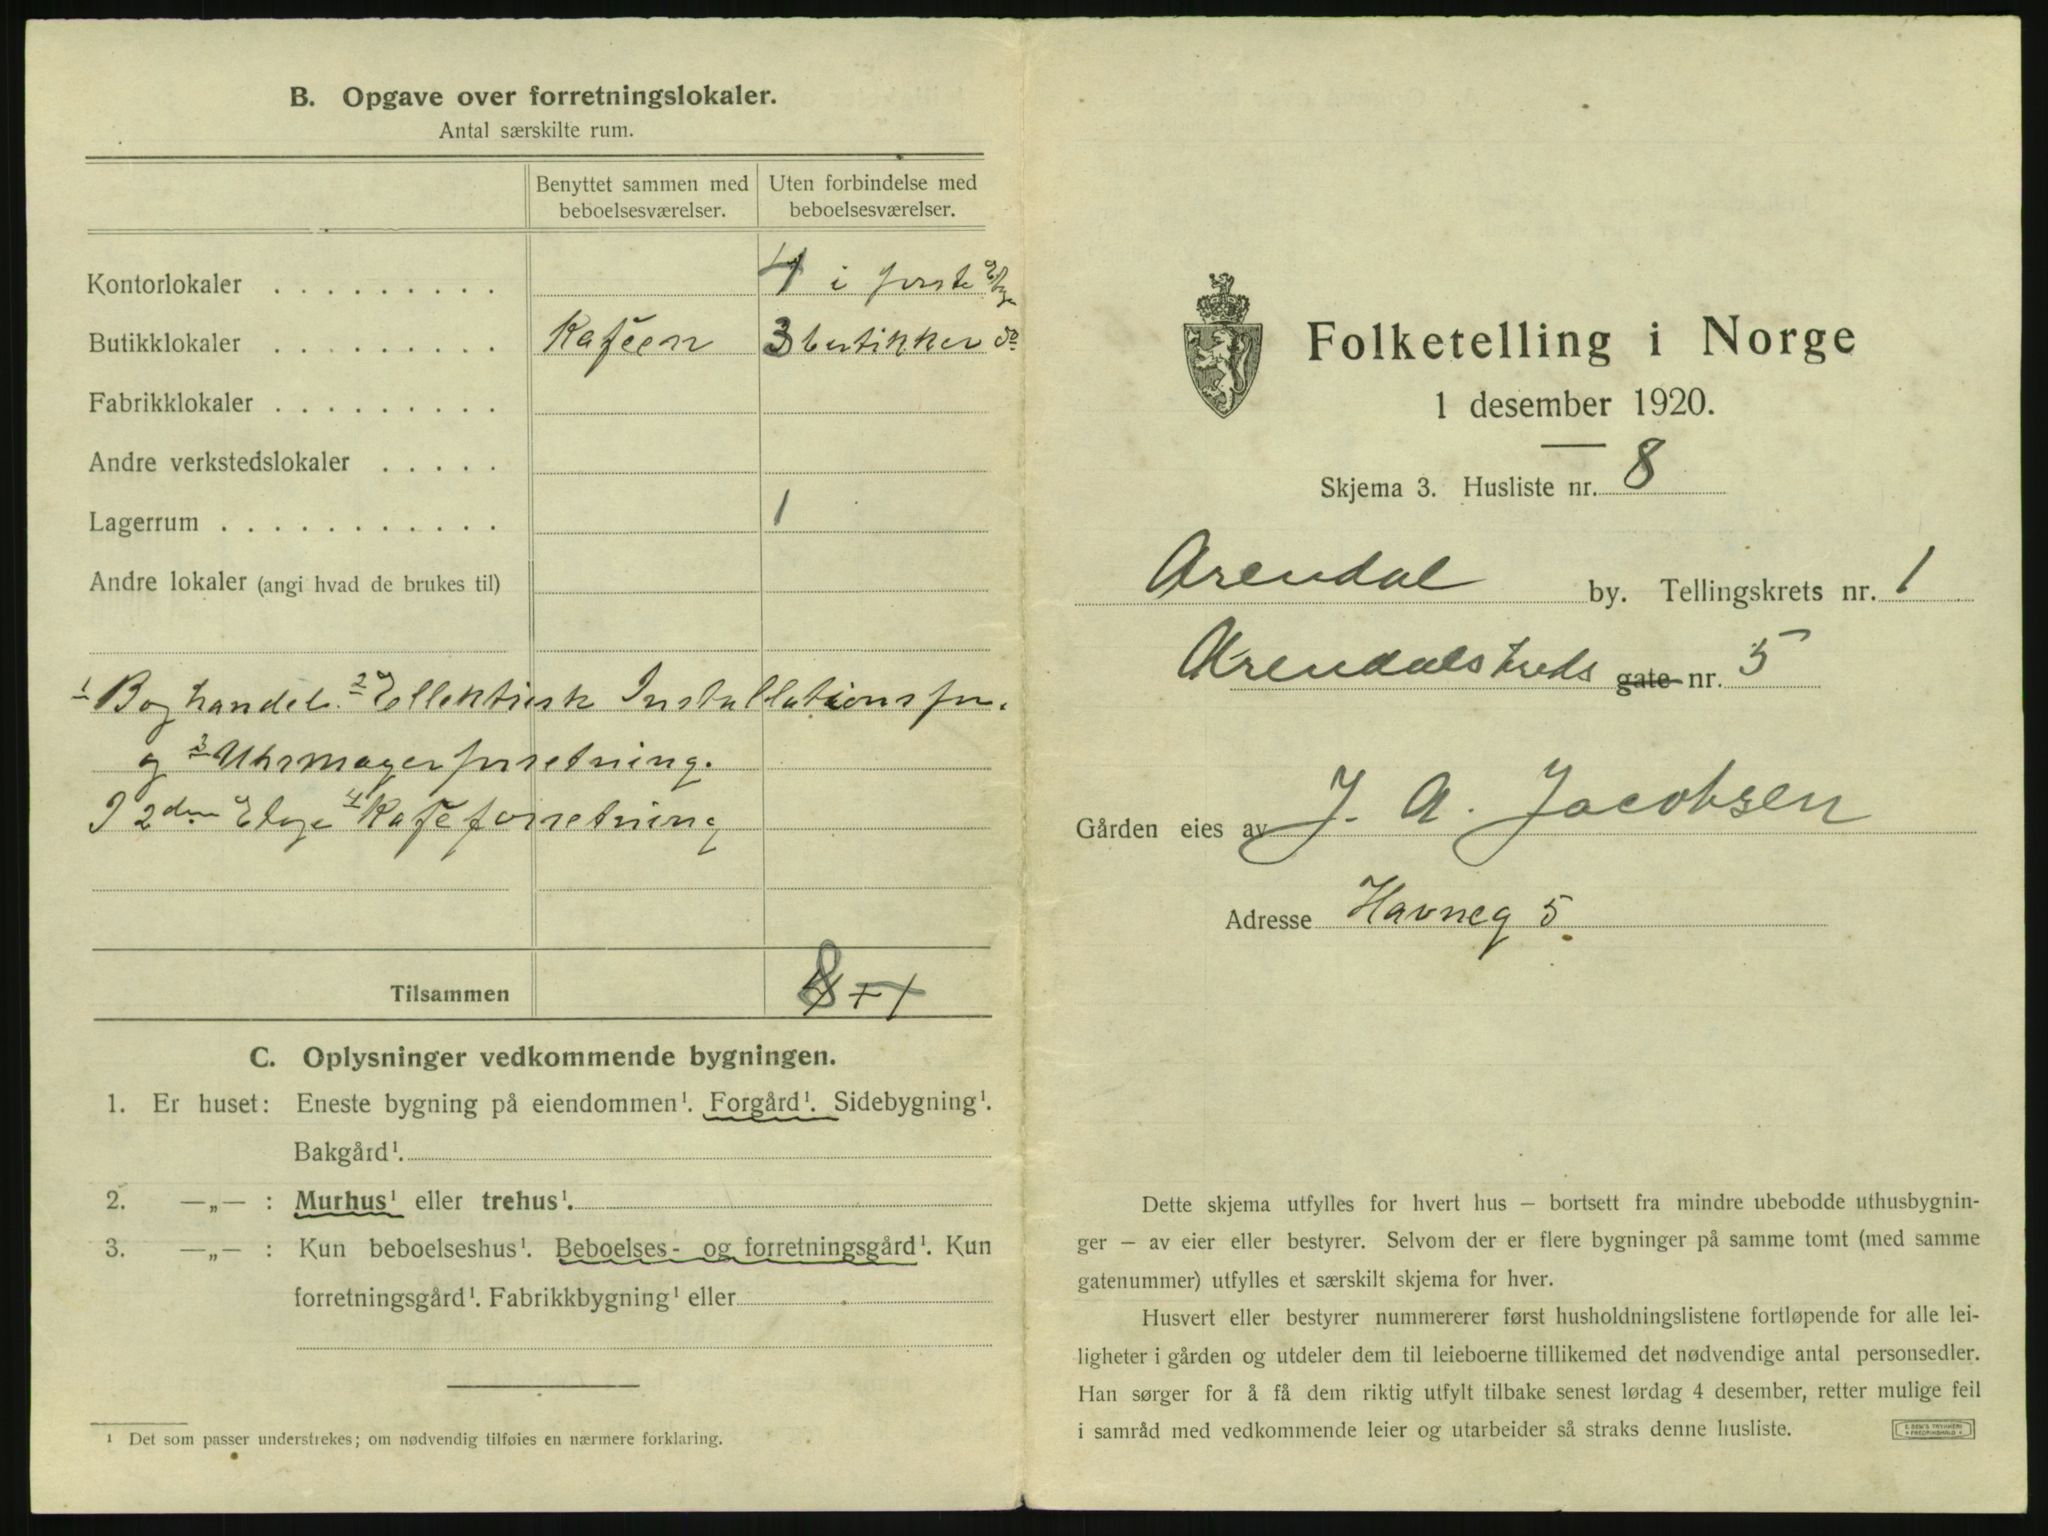 B. Opgave over forretningslokaler.
Antal særskilte rum.
Benyttet sammen med beboelsesværelser.
Uten forbindelse med beboelsesværelser.
Kontorlokaler . . . . . . . . . 4 i første Etage
Butikklokaler . . . . . . . . . Kafeen 3 butikker do
Fabrikklokaler . . . . . . . . .
Andre verkstedslokaler . . . . .
Lagerrum . . . . . . . . . . . . 1
Andre lokaler (angi hvad de brukes til)
1 Boghandel. 2 Ellektrisk Installationsfor.
og 3 Uhrmagerforretning.
I 2den Etage 4 Kafeforretning
Tilsammen 8
C. Oplysninger vedkommende bygningen.
1. Er huset: Eneste bygning på eiendommen¹. Forgård¹. Sidebygning¹.
Bakgård¹.
2. —„— : Murhus¹ eller trehus¹.
3. —„— : Kun beboelseshus¹. Beboelses- og forretningsgård¹. Kun
forretningsgård¹. Fabrikkbygning¹ eller
¹ Det som passer understrekes; om nødvendig tilføies en nærmere forklaring.
Folketelling i Norge
1 desember 1920.
Skjema 3. Husliste nr. 8
Arendal by. Tellingskrets nr. 1
Arendalstreds gate nr. 5
Gården eies av J. A. Jacobsen
Adresse Havneg 5.
Dette skjema utfylles for hvert hus – bortsett fra mindre ubebodde uthusbygnin-
ger – av eier eller bestyrer. Selvom der er flere bygninger på samme tomt (med samme
gatenummer) utfylles et særskilt skjema for hver.
Husvert eller bestyrer nummererer først husholdningslistene fortløpende for alle lei-
ligheter i gården og utdeler dem til leieboerne tillikemed det nødvendige antal personsedler.
Han sørger for å få dem riktig utfylt tilbake senest lørdag 4 desember, retter mulige feil
i samråd med vedkommende leier og utarbeider så straks denne husliste.